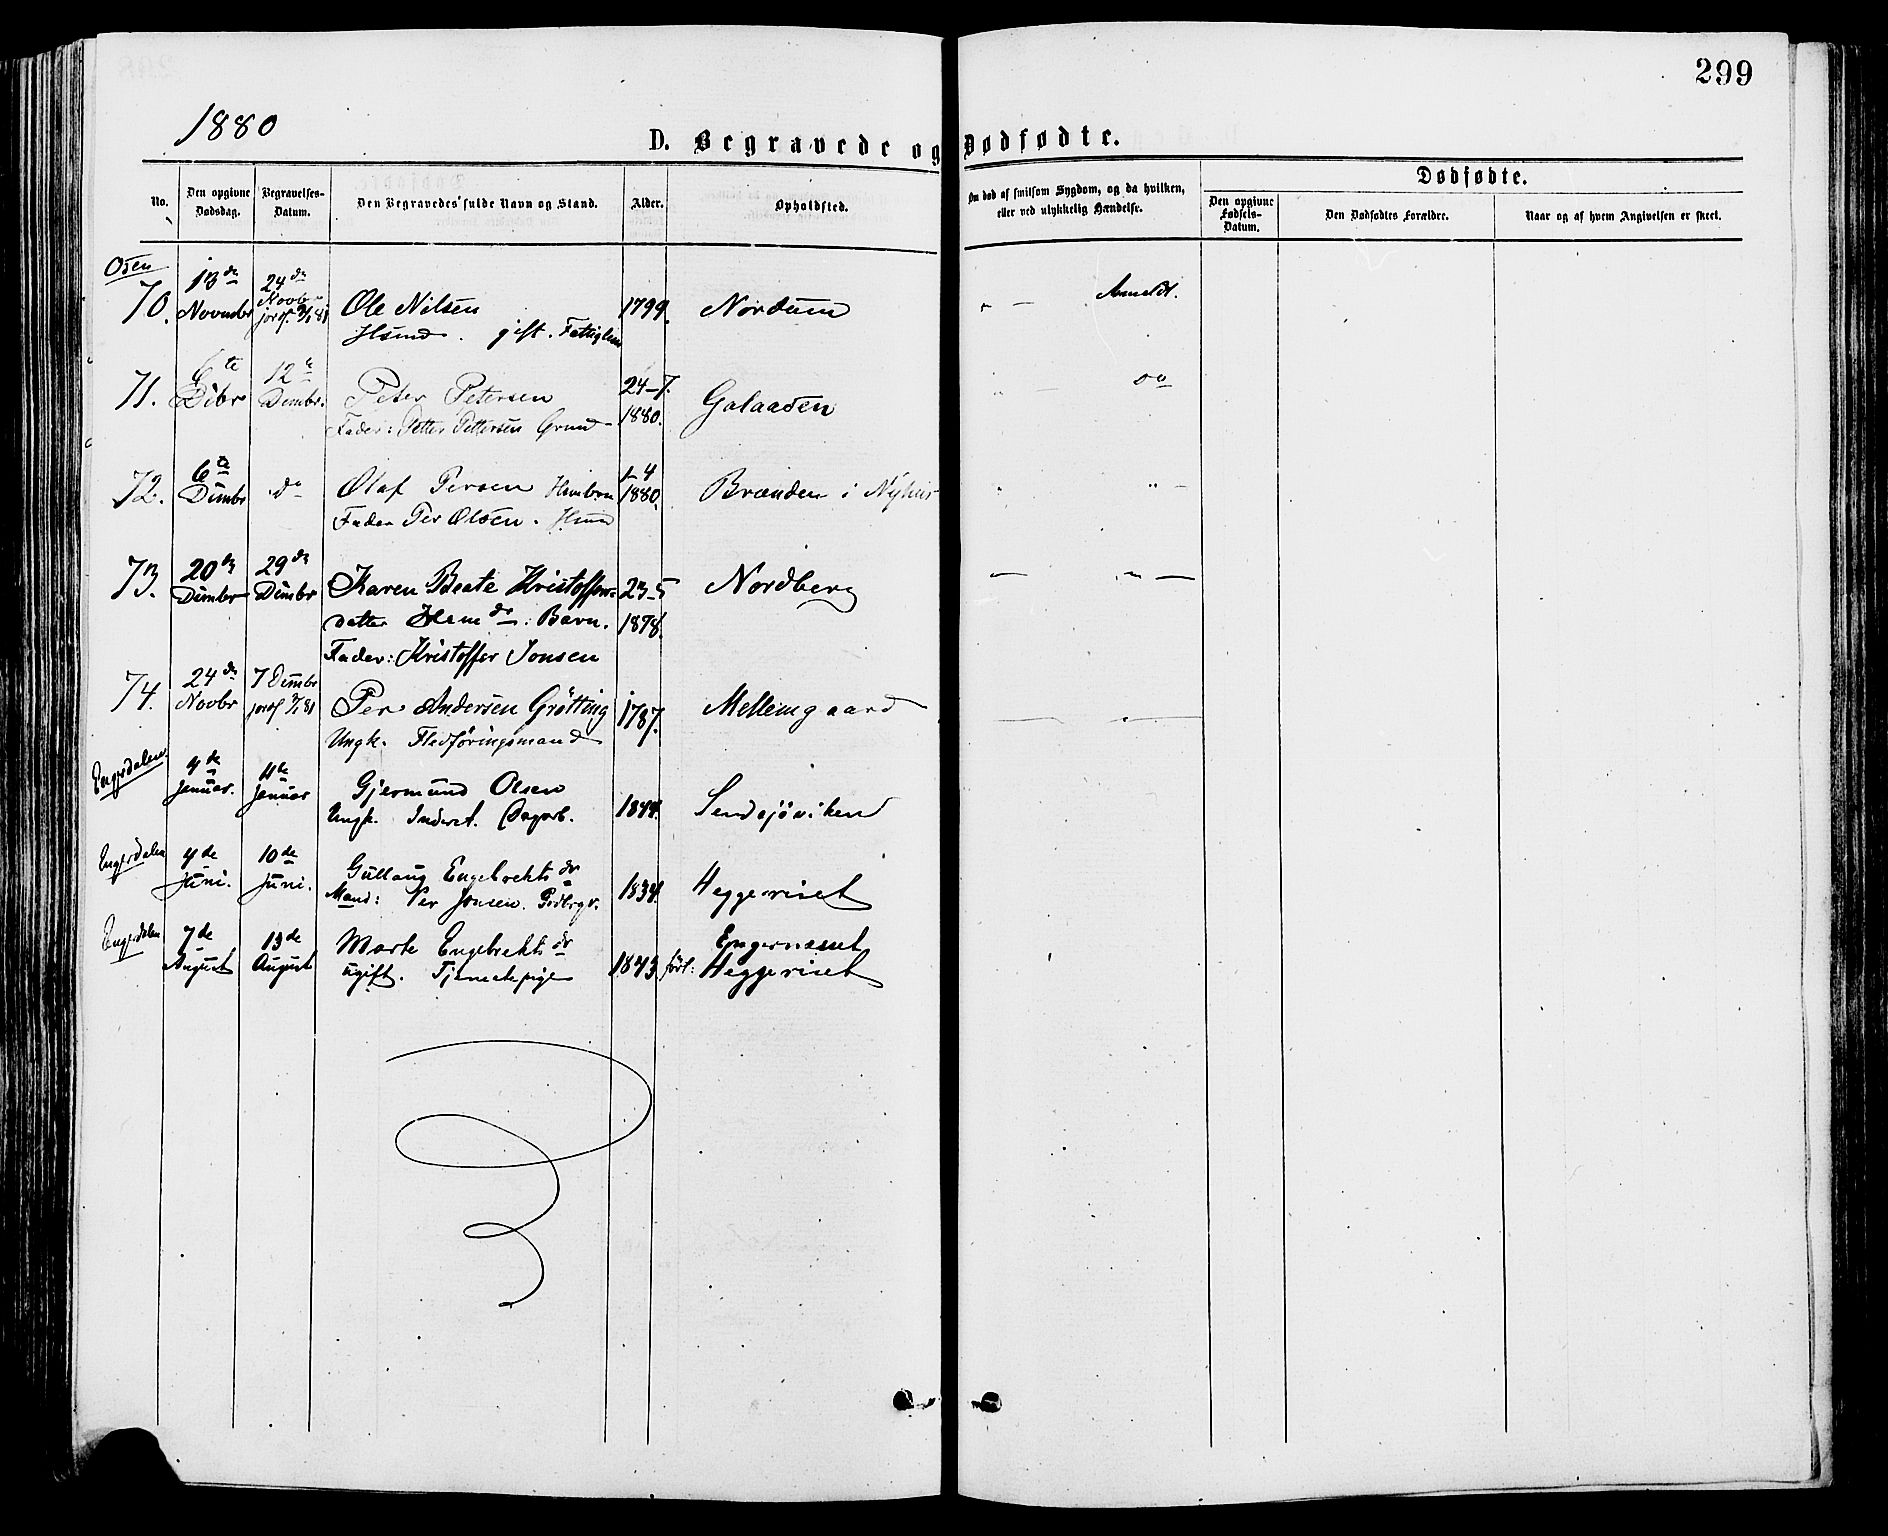 299
1880
D. Begravede og Dødfødte.
No.
Den opgivne Dødsdag.
Begravelses-Datum.
Den Begravedes' fulde Navn og Stand.
Alder.
Opholdsted.
Om død af smitsom Sygdom, og da hvilken, eller ved ulykkelig Hændelse.
Dødfødte.
Den opgivne Fødsels-Datum.
Den Dødfødtes Forældre.
Naar og af hvem Angivelsen er skeet.
Osen
70. 13de Novmbr 24de Novbr jordf. 3/1 81 Ole Nilsen 1799. Nordum Anmeldt.
Hsmd. gift. Fattiglem
71. 6te Dcbr 12te Dcmbr. Peter Petersen 24-7. 1880. Galaasen do
Fader: Petter Pettersen Grund
72. 6te Dcmbr do Olaf Persen 1-4 1880. Brænden i Nyhus " -
Fader Per Olsen. Hsmd
73. 20de Dcmbr 29de Dcmbr Karen Beate Kristoffers- 23-5 1878. Nordberg — " —
datter Hsmds. Barn.
Fader: Kristoffer Jonsen
74. 24de Novbr 7 Dcmbr jordf 3/1 81 Per Andersen Grötting 1787. Mellemgaard
Ungk. Fledføringsmand
Engerdalen 4de Januar. 11te Januar Gjermund Olsen 1844. Sendsjöviken
Ungk. Inderst. Dagarb.
Engerdalen 4de Juni. 10de Juni. Gullaug Engebrektsdr 1834. Heggeriset
Mand: Per Jonsen.
Engerdalen 7de August 13de August Marte Engebrektsdr 1843 Engerneset
ugift. Tjenestepige født: Heggeriset